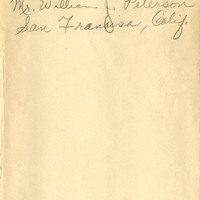 Mr. William J. Peterson
San Francisa, Calif.